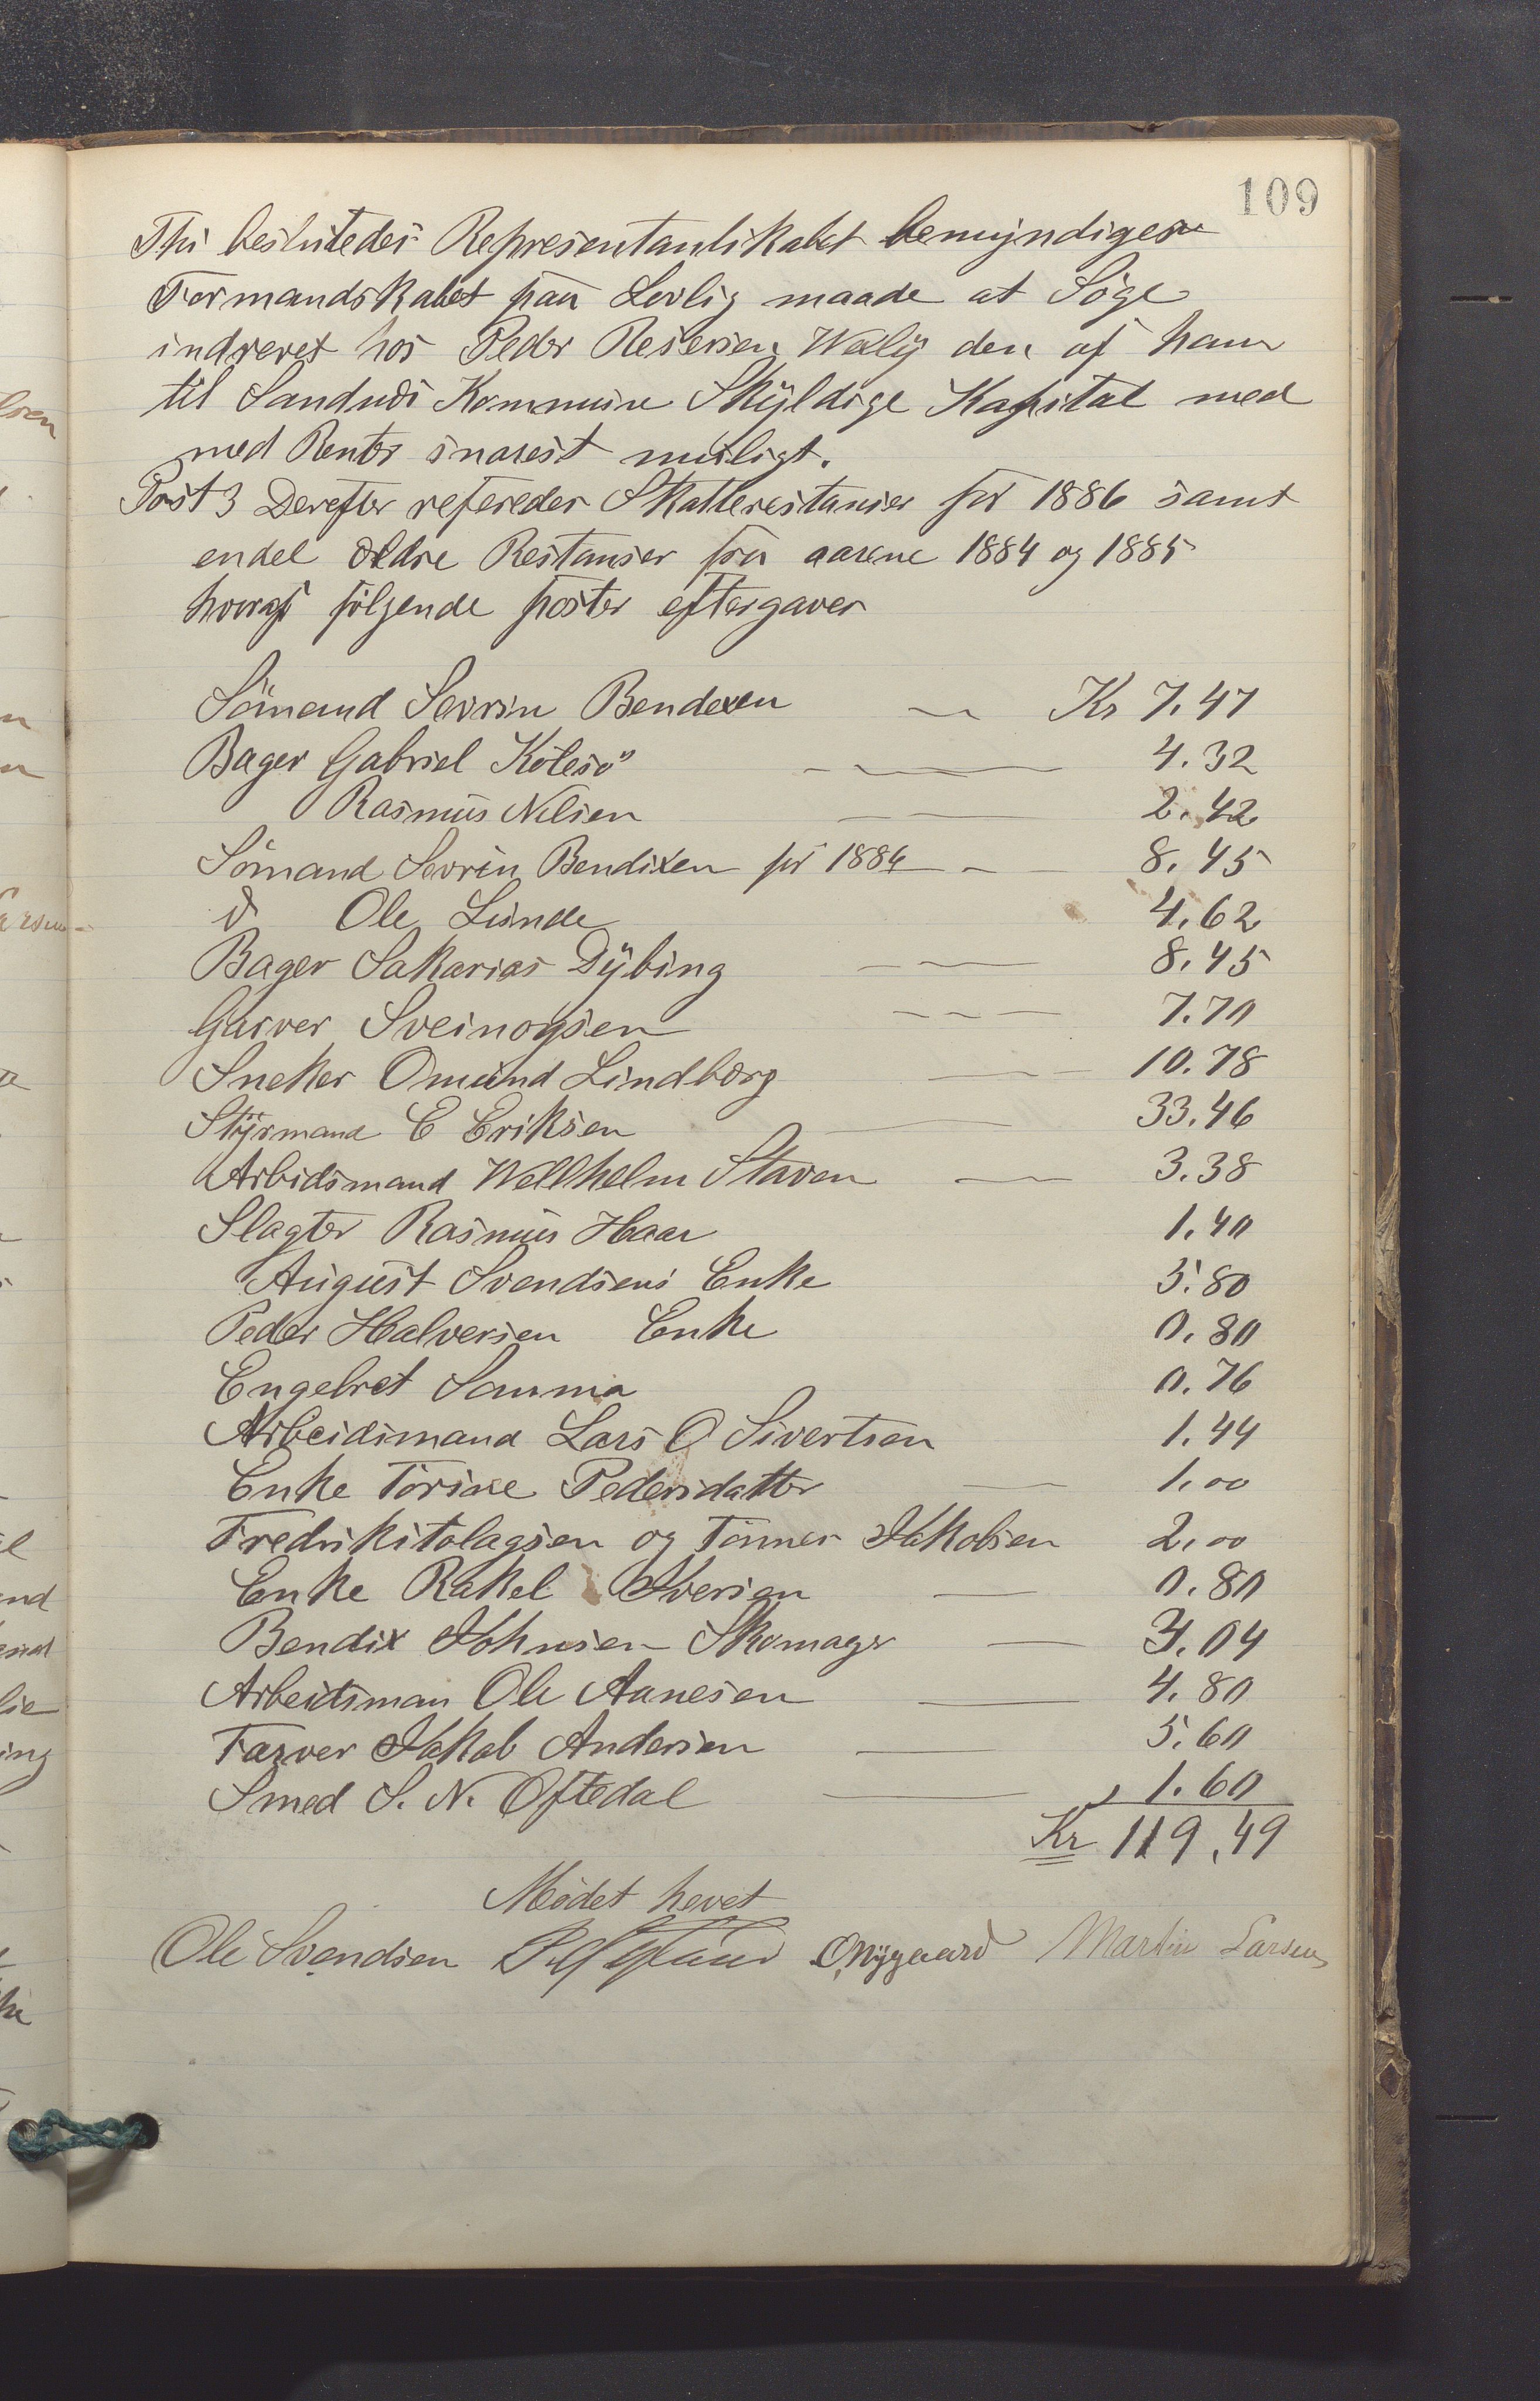 109
Thi besluttedes Representantskabet bemyndiger
Formandskabet paa Lovlig maade at Söge
inddrevet hos Peder Reiersen Welly den af ham
til Sandnæs Kommune Skyldige Kapital med
med Renter snarest muligt.
Post 3 Derefter refereder Skatterestanser for 1886 samt
endel ældre Restanser fra aarene 1884 og 1885
hvoraf fölgende poster eftergaves
Sömand Sevrin Bendexen Kr 7.47
Bager Gabriel Kölesö 4.32
Rasmus Nilsen 2.42
Sömand Sevrin Bendixen for 1884 8.45
d Ole Lunde 4.62
Bager Sakarias Dybing 8.45
Garver Sveinogsen 7.70
Sneker Omund Lindberg 10.78
Styrmand E Eriksen 33.46
Arbidsmand Wellhelm Staven 3.38
Slagter Rasmus Haar 1.40
August Svendsens Enke 5.80
Peder Halversen Enke 0.80
Engelret Somma 0.76
Arbeidsmand Lars O Sivertsen 1.44
Enke Torine Pedersdatter 1.00
Fredrikstolagsen og Tönnes Jakobsen 2.00
Enke Rakel Iversen 0.80
Bendix Johnsen Skomager 3.04
Arbeidsman Ole Aanesen 4.80
Farver Jakob Andersen 5.60
Smed S. N. Oftedal 1.60
Kr 119.49
Mödet hevet
Ole Svendsen O Nygaard Martin Larsen